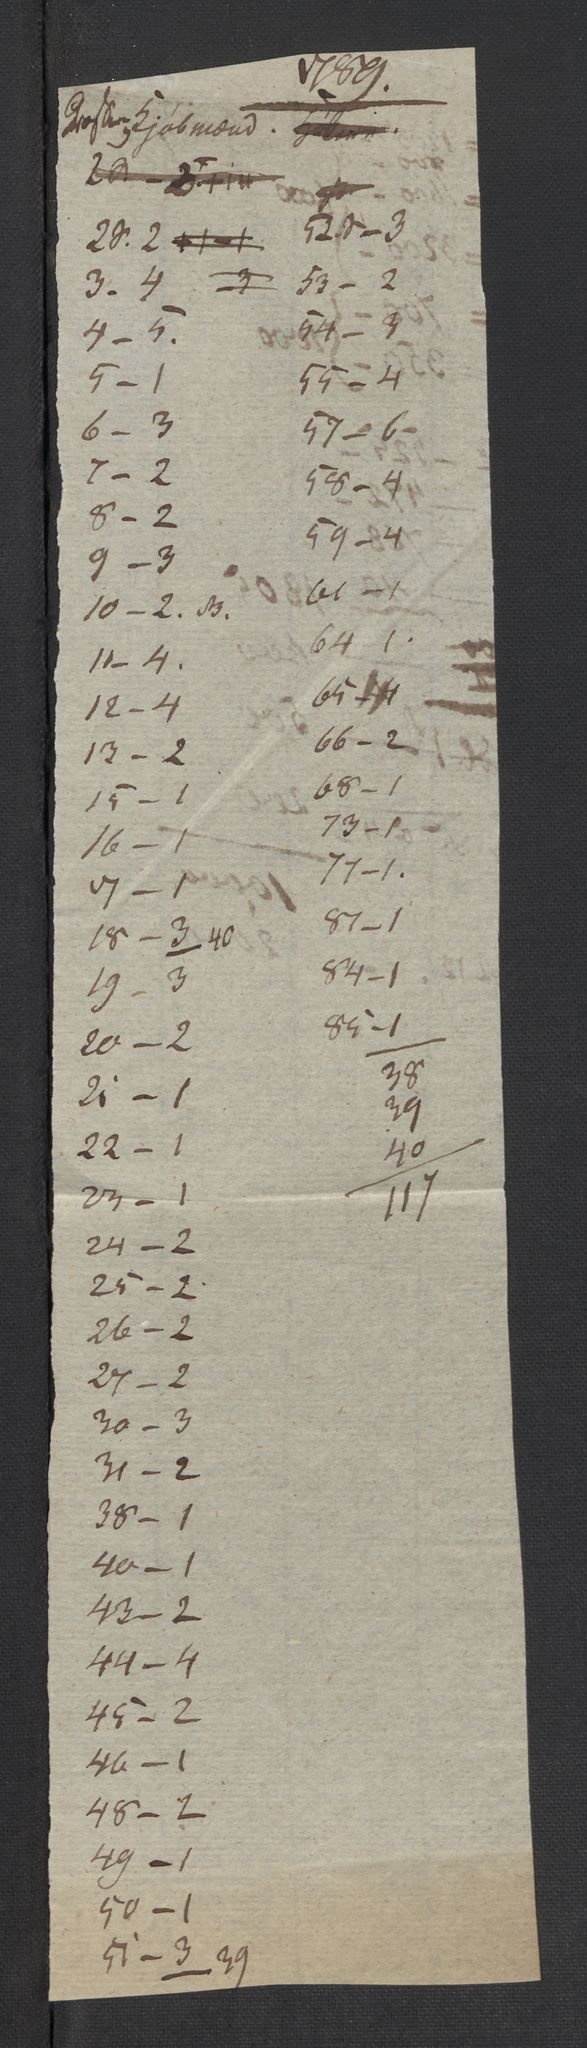 1789.
Kjöbmænd.
28. 2
3 - 4
4 - 5.
5 - 1
6 - 3
7 - 2
8 - 2
9 - 3
10 - 2. N.
11 - 4.
12 - 4
13 - 2
15 - 1
16 - 1
17 - 1
18 - 3 40
19 - 3
20 - 2
21 - 1
22 - 1
23 - 1
24 - 2
25 - 2
26 - 2
27 - 2
30 - 3
31 - 2
38 - 1
40 - 1
43 - 2
44 - 4
45 - 2
46 - 1
48 - 2
49 - 1
50 - 1
51 - 3 39
52 - 3
53 - 2
54 - 3
55 - 4
57 - 6 -
58 - 4
59 - 4
61 - 1
64 - 1.
65 - 4
66 - 2
68 - 1
73 - 1
77 - 1.
81 - 1
84 - 1
85 - 1
38
39
40
117